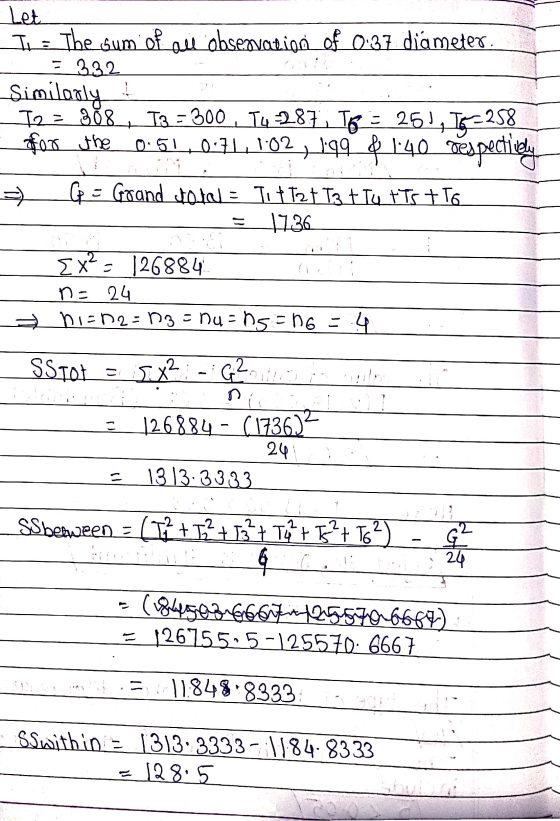 Let
T1 = The sum of all observation of 0.37 diameter.
= 332
Similarly
T2 = 308, T3 = 300, T4 = 287, T5 = 251, T6 = 258
for the 0.51, 0.71, 1.02, 1.99 & 1.40 respectively
⇒ G = Grand total = T1+T2+T3+T4+T5+T6
= 1736
Σx² = 126884
n = 24
⇒ n1=n2=n3=n4=n5=n6 = 4
SSTot = Σx² - G²/n
= 126884 - (1736)²/24
= 1313.3333
SSbetween = (T1²+T2²+T3²+T4²+T5²+T6²)/4 - G²/24
= (184503.6667-125570.6667)
= 126755.5-125570.6667
= 11848.8333
SSwithin = 1313.3333-1184.8333
= 128.5